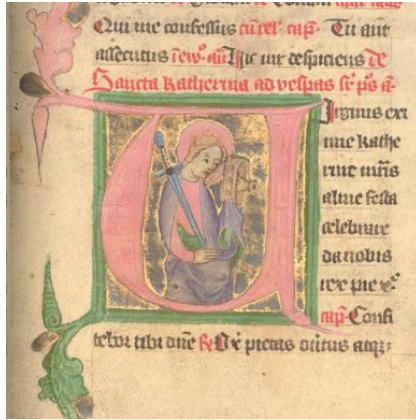 Qui me confessus cū cel cap̄. Tu aūt
assecutus
Hic vir despiciens De
Sancta katherina ad vesp̄as sr̄ pͣs a̅.
U
irginis exi
mie kathe
rine mr̄is
alme festa
celebrare
da nobis
rex pie xͤ.
cap̄. Confi
tebor tibi dn̄e R̄ O pietas atqꝫ